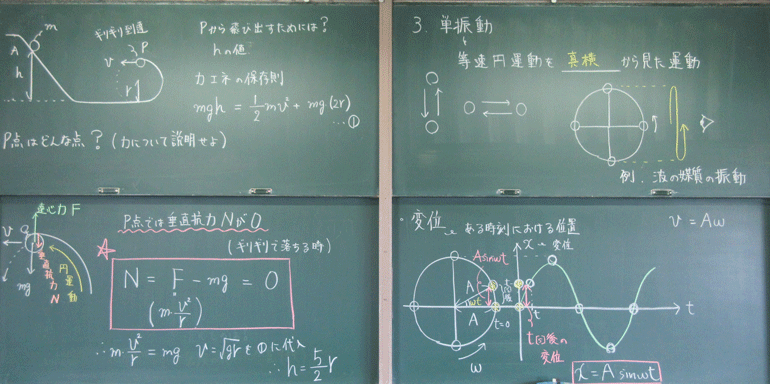 m
ギリギリ到達
A
P
v
h
r
Pから飛び出すためには？
hの値
力エネの保存則
mgh = 1/2 mv² + mg(2r)
…①
P点はどんな点？(力について説明せよ)
3. 単振動
等速円運動を 真横 から見た運動
例. 波の媒質の振動
遠心力F
v
mg
垂直抗力N
円運動
P点では垂直抗力Nが0
(ギリギリで落ちる時)
N = F - mg = 0
(m v²/r)
∴ m v²/r = mg v=√gr を①に代入
∴ h = 5/2 r
・変位 ある時刻における位置
v = Aω
x 変位
Asinωt
A
ωt
A
t=0
t
t
t回後の
変位
ω
x = A sinωt